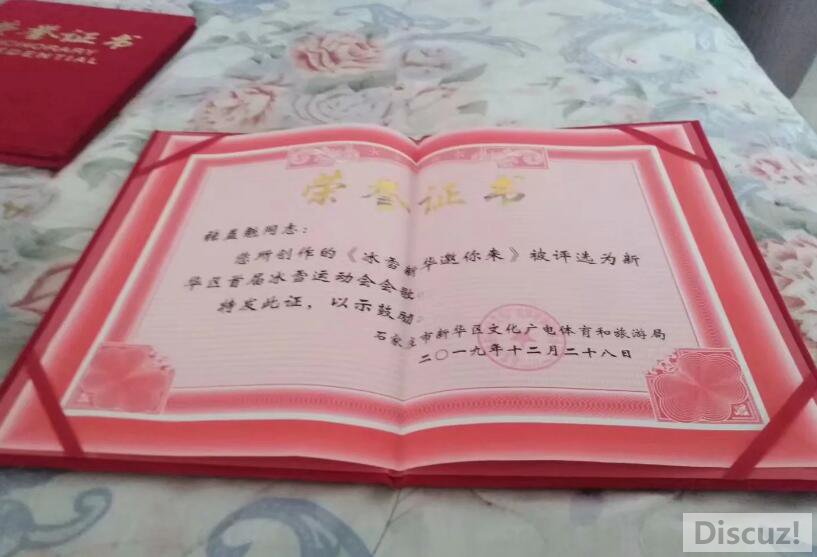 荣誉证书
HONORARY
荣誉证书
张孟魁同志：
您所创作的《冰雪新华邀你来》被评选为新
华区首届冰雪运动会会歌。
特发此证，以示鼓励。
石家庄市新华区文化广电体育和旅游局
二〇一九年十二月二十八日
Discuz!